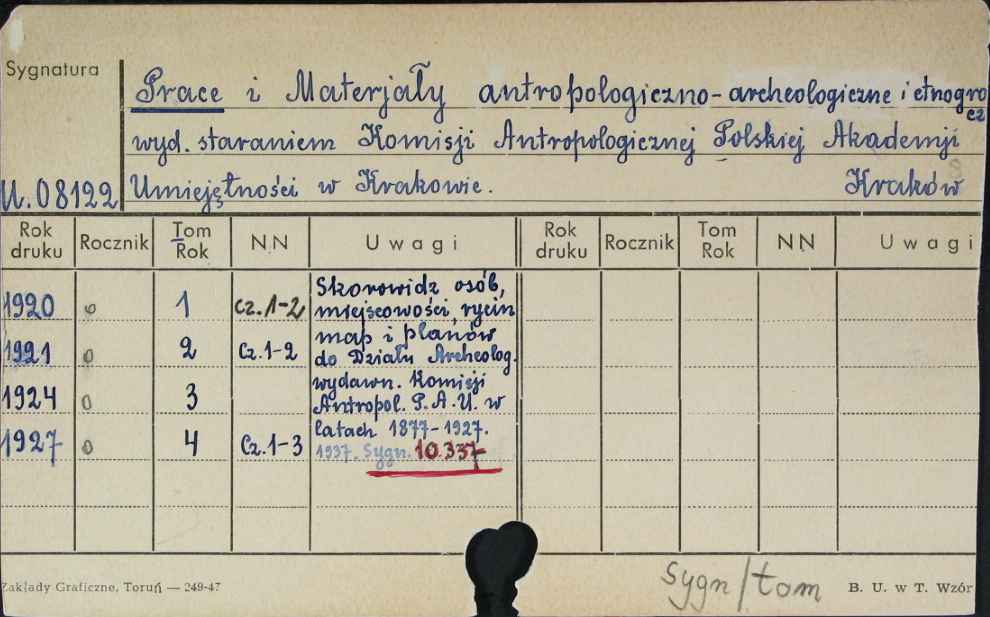 Sygnatura
Prace i Materjały antropologiczno-archeologiczne i etnogra
cz
wyd. staraniem Komisji Antropologicznej Polskiej Akademji
U.08122 Umiejętności w Krakowie. Kraków
Rok druku Rocznik Tom Rok NN Uwagi Rok druku Rocznik Tom Rok NN Uwagi
1920 0 1 cz. 1-2 Skorowidz osób,
miejscowości, rycin
map i planów
1921 0 2 Cz. 1-2 do Działu Archeolog.
wydawn. Komisji
1924 0 3 Antropol. P.A.U. w
latach 1877-1927.
1927 0 4 Cz. 1-3 1937. Sygn. 10.337
Zakłady Graficzne, Toruń — 249-47 sygn/tom B. U. w T. Wzór